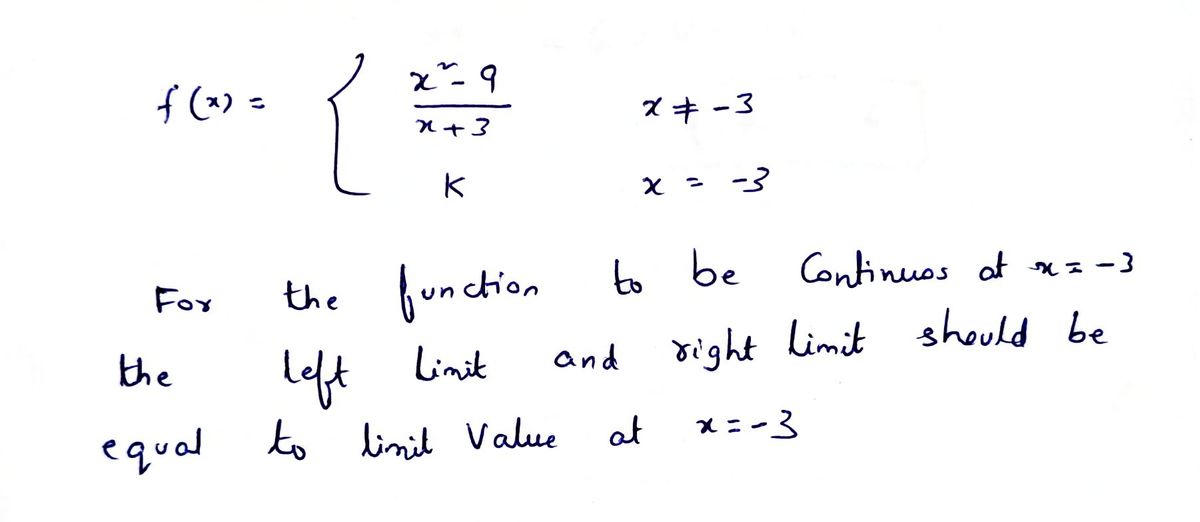 f(x) = { x² - 9 / x + 3    x ≠ -3
K    x = -3
For the function to be Continuos at x = -3
the left limit and right limit should be
equal to limit Value at x = -3